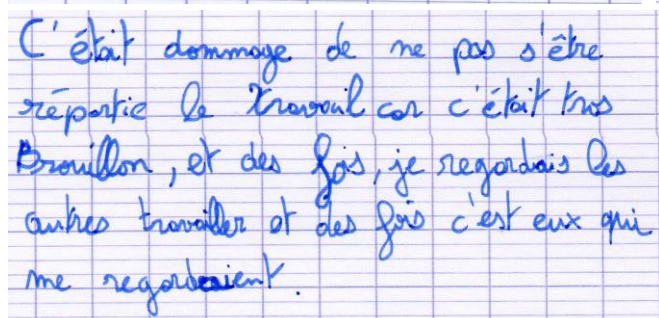 C'était dommage de ne pas s'être
répartie le travail car c'était tros
Brouillon, et des fois, je regardais les
autres travailler et des fois c'est eux qui
me regardaient.